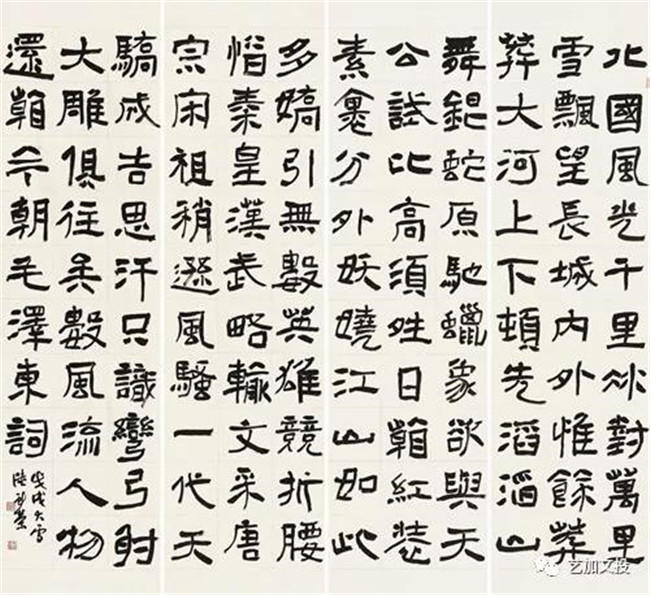 北國風光千里冰封萬里
雪飄望長城內外惟餘莽
莽大河上下頓失滔滔山
舞銀蛇原馳蠟象欲與天
公試比高須晴日看紅裝
素裹分外妖嬈江山如此
多嬌引無數英雄競折腰
惜秦皇漢武略輸文采唐
宗宋祖稍遜風騷一代天
驕成吉思汗只識彎弓射
大雕俱往矣數風流人物
還看今朝毛澤東詞
艺加文投